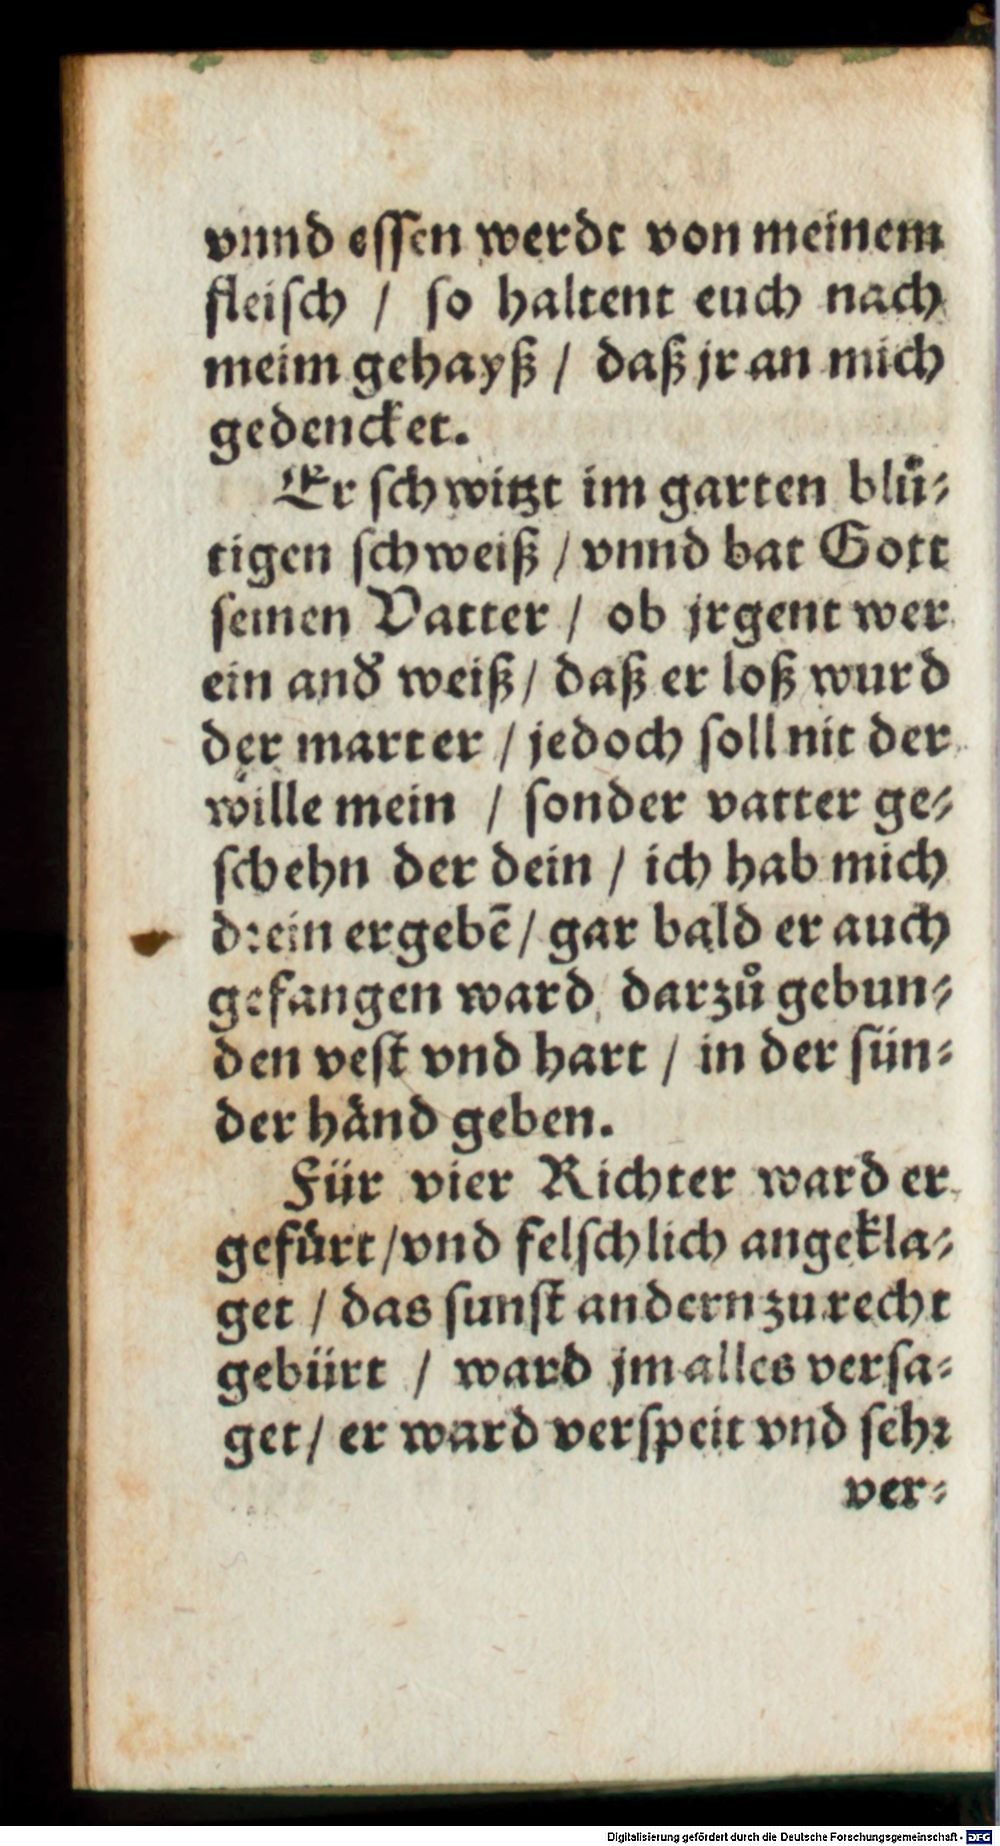 vnnd essen werdt von meinem
fleisch / so haltent euch nach
meim gehayß / daß jr an mich
gedencket.
Er schwitzt im garten blů-
tigen schweiß / vnnd bat Gott
seinen Vatter / ob jrgent wer
ein and̕ weiß / daß er loß wurd
der marter / jedoch soll nit der
wille mein / sonder vatter ge-
schehn der dein / ich hab mich
drein ergebē / gar bald er auch
gefangen ward, darzů gebun-
den vest vnd hart / in der sün-
der händ geben.
Für vier Richter ward er
gefürt / vnd felschlich angekla-
get / das sunst andern zu recht
gebürt / ward jm alles versa-
get / er ward verspeit vnd sehr
ver-
Digitalisierung gefördert durch die Deutsche Forschungsgemeinschaft - DFG